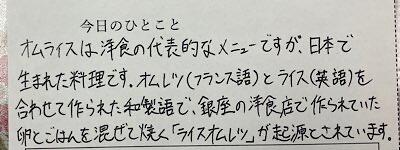 今日のひとこと
オムライスは洋食の代表的なメニューですが、日本で
生まれた料理です。オムレツ(フランス語)とライス(英語)を
合わせて作られた和製語で、銀座の洋食店で作られていた
卵とごはんを混ぜて焼く「ライスオムレツ」が起源とされています。